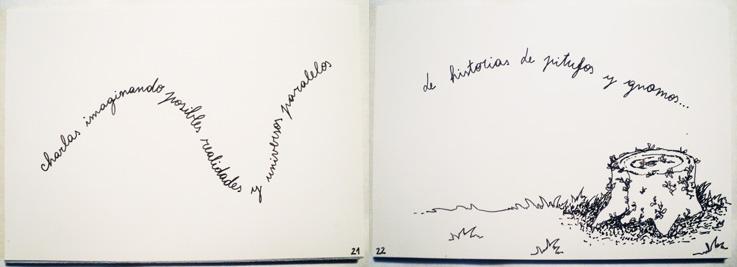 charlas imaginando posibles realidades y universos paralelos
21
de historias de pitufos y gnomos...
22